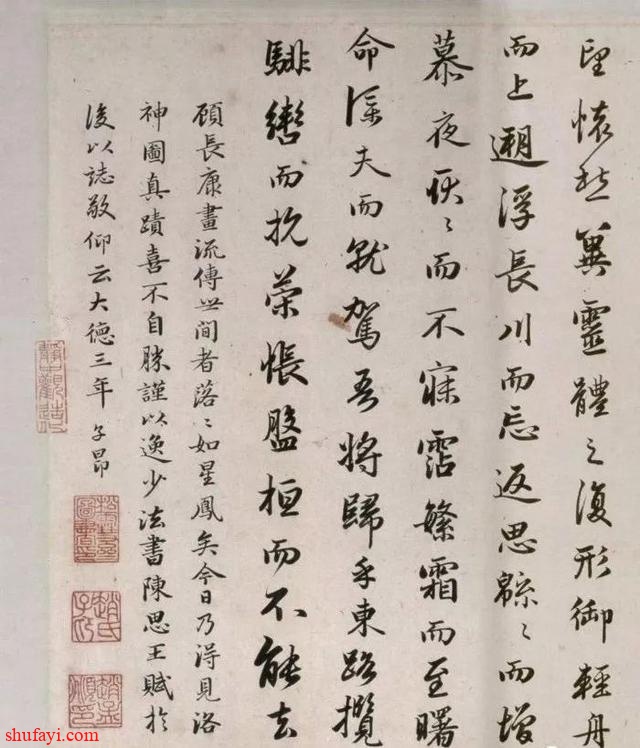 望懷愁冀靈體之復形御輕舟
而上遡浮長川而忘返思緜〻而增
慕夜耿〻而不寐霑繁霜而至曙
命僕夫而就駕吾將歸乎東路攬
騑轡而抗策悵盤桓而不能去
顧長康畫流傳世間者落〻如星鳳矣今日乃得見洛
神圖真蹟喜不自勝謹以逸少法書陳思王賦於
後以誌敬仰云大德三年子昂
趙氏子昂
趙孟頫印
shufayi.com